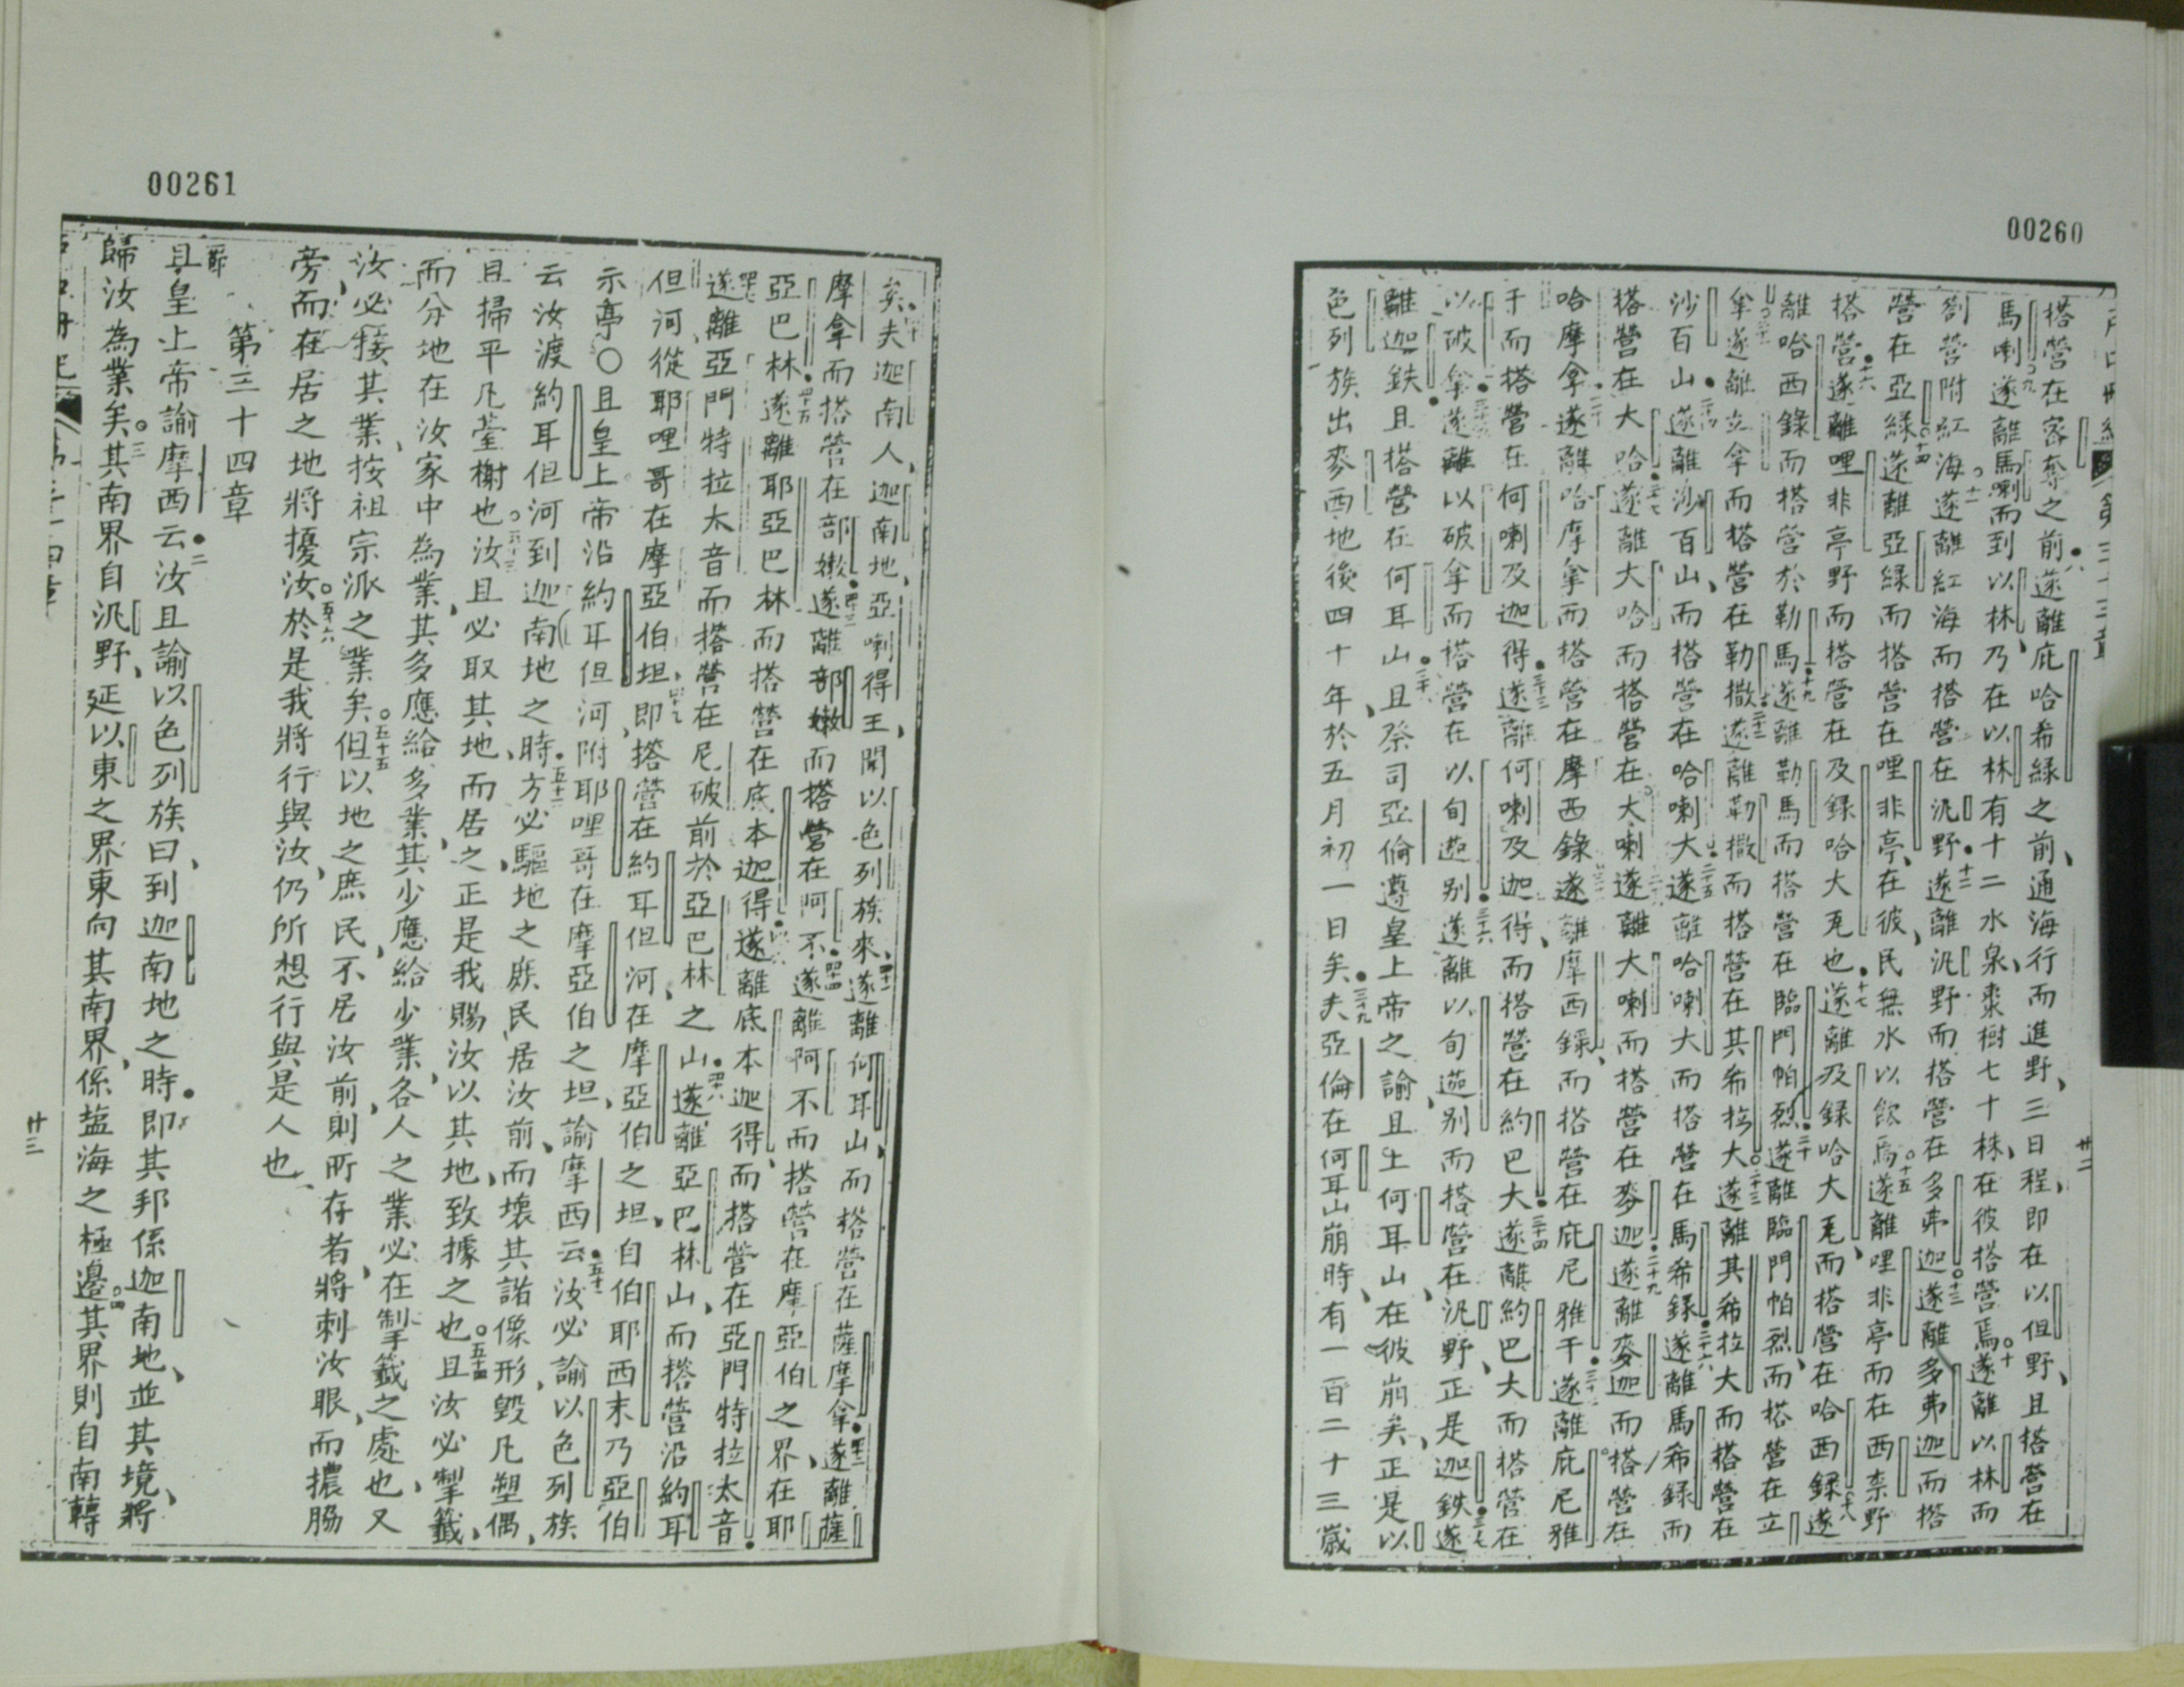 00260
搭營在密奪之前遂離庇哈希緑之前通海行而進野三日程即在以但野且搭營在
馬喇遂離馬喇而到以林乃在以林有十二水泉棗樹七十株在彼搭營焉遂離以林而
劄營附紅海遂離紅海而搭營在汎野遂離汎野而搭營在多弗迦遂離多弗迦而搭
營在亞緑遂離亞緑而搭營在哩非亭在彼民無水以飲焉遂離哩非亭而在西柰野
搭營遂離哩非亭野而搭營在及錄哈大㡯也遂離及録哈大㡯而搭營在哈西録遂
離哈西錄而搭營於勒馬遂離勒馬而搭營在臨門帕烈遂離臨門帕烈而搭營在立
拿遂離立拿而搭營在勒撒遂離勒撒而搭營在其希拉大遂離其希拉大而搭營在
沙百山遂離沙百山而搭營在哈喇大遂離哈喇大而搭營在馬希録遂離馬希録而
搭營在大哈遂離大哈而搭營在大喇遂離大喇而搭營在麥迦遂離麥迦而搭營在
哈摩拿遂離哈摩拿而搭營在摩西錄遂離摩西錄而搭營在庇尼雅干遂離庇尼雅
于而搭營在何喇及迦得遂離何喇及迦得而搭營在約巴大遂離約巴大而搭營在
以破拿遂離以破拿而搭營在以旬迦别遂離以旬迦别而搭營在汎野正是迦鉄遂
離迦鉄且搭營在何耳山且祭司亞倫遵皇上帝之諭且上何耳山在彼崩矣正是以
色列族出麥西地後四十年於五月初一日矣夫亞倫在何耳山崩時有一百二十三歲
廿二
00261
矣夫迦南人迦南地亞喇得王聞以色列族來遂離何耳山而搭營在薩摩拿遂離薩
摩拿而搭營在部嫩遂離部嫩而搭營在阿不遂離阿不而搭營在摩亞伯之界在耶
亞巴林遂離耶亞巴林而搭營在底本迦得遂離底本迦得而搭營在亞門特拉太音
遂離亞門特拉太音而搭營在尼破前於亞巴林之山遂離亞巴林山而搭營沿約耳
但河從耶哩哥在摩亞伯坦即搭營在約耳但河在摩亞伯之坦自伯耶西末乃亞伯
示亭〇且皇上帝沿約耳但河附耶哩哥在摩亞伯之坦諭摩西云汝必諭以色列族
云汝渡約耳但河到迦南地之時方必驅地之庶民居汝前而壞其諾像形毀凡塑偶
且掃平凡臺榭也汝且必取其地而居之正是我賜汝以其地致據之也且汝必掣籤
而分地在汝家中為業其多應給多業其少應給少業各人之業必在掣籤之處也又
汝必接其業按祖宗派之業矣但以地之庶民不居汝前則所存者將刺汝眼而攪脇
旁而在居之地將擾汝於是我將行與汝仍所想行與是人也
第三十四章
且皇上帝諭摩西云汝且諭以色列族曰到迦南地之時即其邦係迦南地並其境將
歸汝為業矣其南界自汎野延以東之界東向其南界係盐海之極邊其界則自南轉
廿三